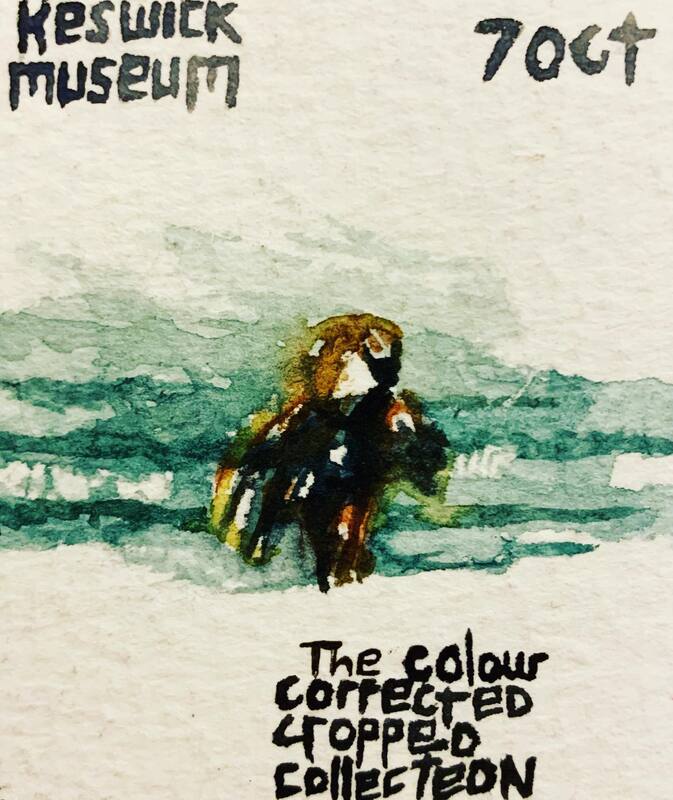 Keswick
museum
7 Oct
The colour
correcTED
croppeD
collecTeoN